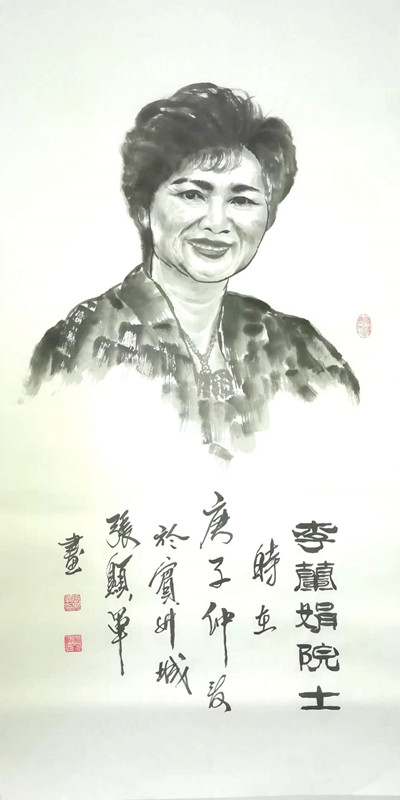 李蘭娟院士
時在
庚子仲夏
於賓州城
張顯軍
畫